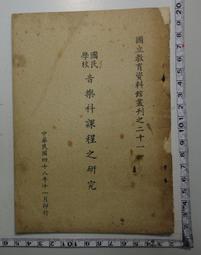 國立教育資料館叢刊之二十一
國民
學校
音樂科課程之研究
中華民國四十八年十一月印行